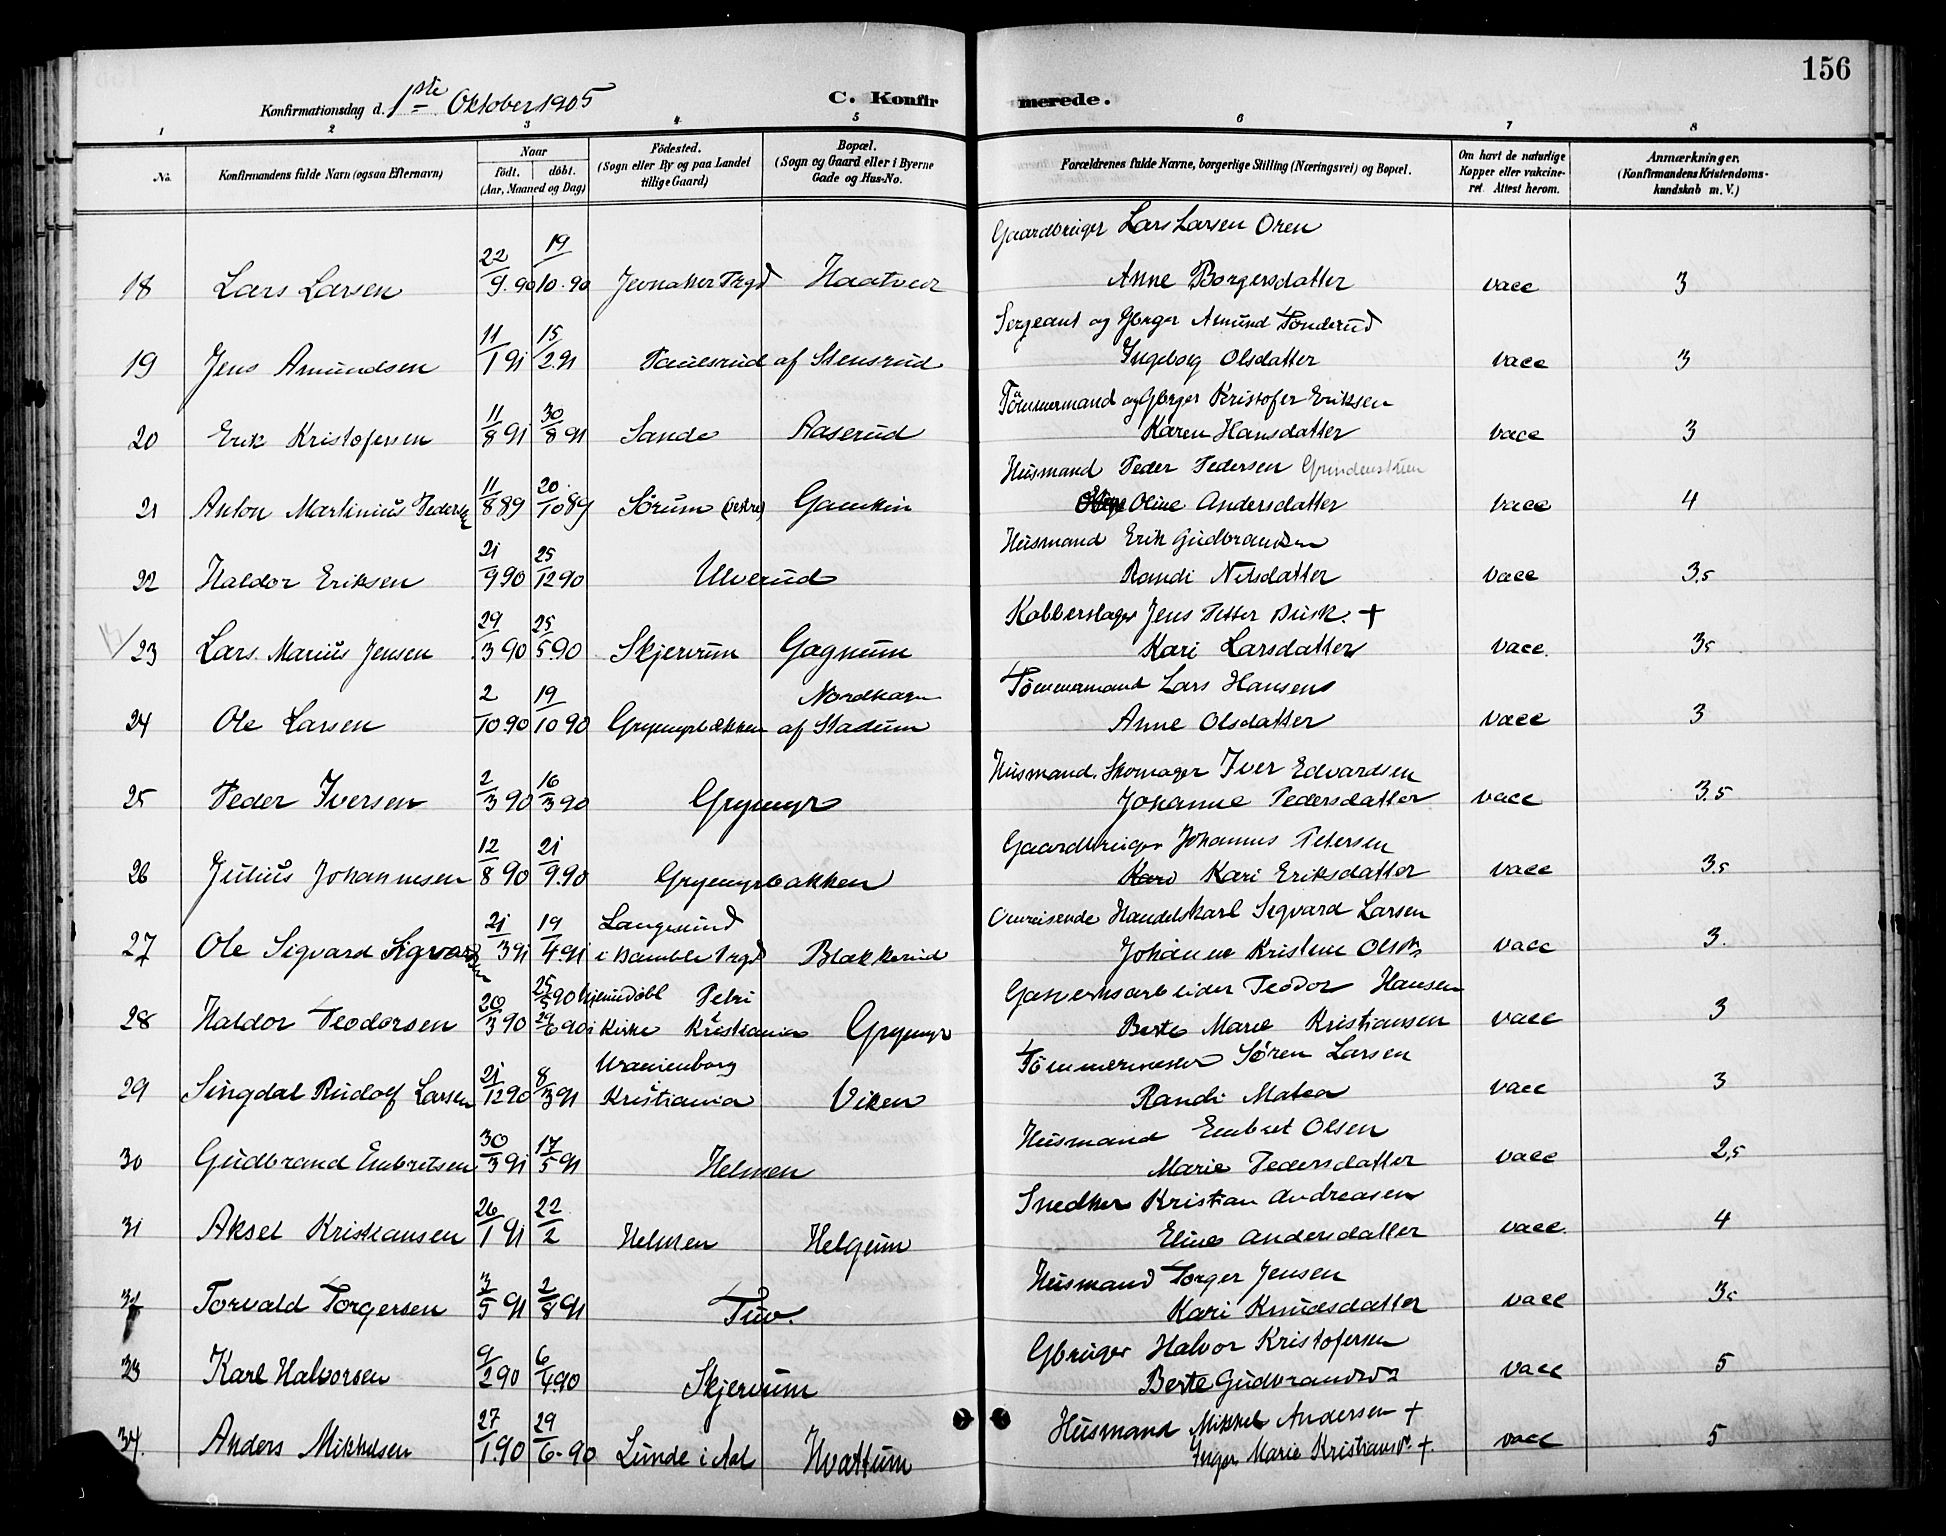 156
Konfirmationsdag d. 1ste Oktober 1905 C. Konfirmerede.
1 2 3 4 5 6 7 8
No. Konfirmandens fulde Navn (ogsaa Efternavn) Naar født. døbt. (Aar, Maaned og Dag) Fødested. (Sogn eller By og paa Landet tillige Gaard) Bopæl. (Sogn og Gaard eller i Byerne Gade og Hus-No. Forældrenes fulde Navne, borgerlige Stilling (Næringsvei) og Bopæl. Om havt de naturlige Kopper eller vakcineret. Attest herom. Anmærkninger. (Konfirmandens Kristendomskundskab m. V.)
Gaardbruger Lars Larsen Oren
18 Lars Larsen 22/9.90 19/10.90 Jevnaker Prgd Haatveir Anne Borgersdatter vacc 3
Sergeant og Gbrger Amund Tønderud
19 Jens Amundsen 11/1 91 15/2.91 Paulsrud af Stensrud Ingeborg Olsdatter vacc 3
Tömmermand og Gbrger Kristofer Eriksen
20 Erik Kristofersen 11/8 91 30/8 91 Sande Aaserud Karen Hansdatter vacc 3
Husmand Peder Pedersen Grindenstuen
21 Anton Martinius Pedersen 11/8 89 20/10 89 Sørum (vestre) Gamkin Oline Andersdatter vacc 4
Husmand Erik Gudbrandsen
22 Haldor Eriksen 21/9 90 25/12 90 Ulverud Randi Nilsdatter vacc 3.5
Kobberslager Jens Petter Busk. +
23 Lars Marius Jensen 29/3 90 25/5.90 Skjervum Gagnum Kari Larsdatter vacc. 3.5
Nordhagen Tömmermand Lars Hansen
24 Ole Larsen 2/10.90 19/10 90 Grymyrbækken af Stadum Anne Olsdatter vacc 3
Husmand. Skomager Iver Edvardsen
25 Peder Iversen 2/3 90 16/3 90 Grymyr Johanne Pedersdatter vacc 3.5
Gaardbruger Johannes Petersen
26 Julius Johannesen 12/8 90 21/9.90 Grymyrbakken Kari Eriksdatter vacc 3.5
Langesund Omreisende Handelskarl Sigvard Larsen
27 Ole Sigvard Sigvardsen 21/3 91 19/4.91 i Bamble Prgd Blakkerud Johanne Kristine Olsdtr vacc 3.
25/5 90 hjemmedøbt Petri Gasverksarbeider Teodor Hansen
28 Haldor Teodorsen 20/3 90 29/6 90 i Kirke Kristiania Grymyr Berte Marie Kristiansen vacc 3
Uranienborg Tömmermester Søren Larsen
29 Singdal Rudolf Larsen 21/12 90 8/3 91 Kristiania Viken Randi Matea vacc 3
Husmand Embret Olsen
30 Gudbrand Embretsen 30/3 91 17/5 91 Helmen Marie Pedersdatter vacc 2,5
Snedker Kristian Andreasen
31 Aksel Kristiansen 26/1 91 22/2 Helmen Helgum Eline Andersdatter vacc. 4
Husmand Torger Jensen
Torvald Torgersen 3/5 91 2/8 91 Tuv. Kari Knudsdatter vacc
Gbruger Halvor Kristofersen
33 Karl Halvorsen 9/2 90 6/4.90 Skjervum Berte Gudbrandsd vacc 5
Husmand Mikkel Andersen +
34. Anders Mikkelsen 27/1.90 29/6.90 Lunde i Aal Hvattum Inger Marie Kristiansdt. +. vacc 5